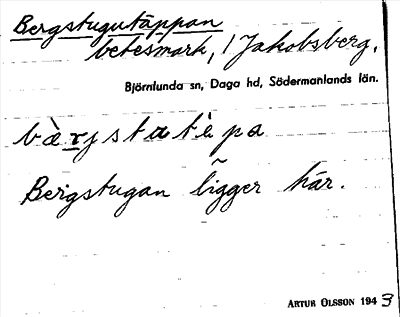 Bergstugutäppan
betesmark, / Jakobsberg.
Björnlunda sn, Daga hd, Södermanlands län.
Bergstugan ligger här.
ARTUR OLSSON 1943